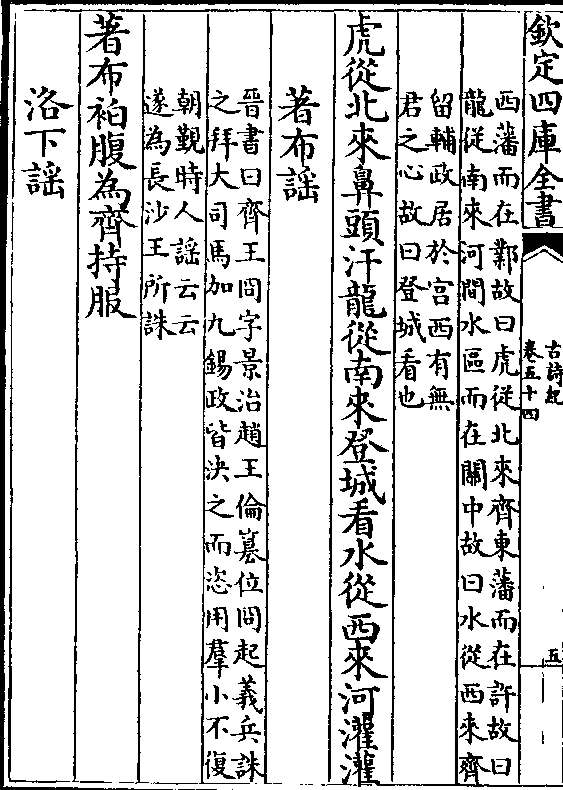 欽定四庫全書
古詩紀
卷五十四
五
西藩而在鄴故曰虎從北來齊東藩而在許故曰
龍從南來河間水區而在關中故曰水從西來齊
留輔政居於宮西有無
君之心故曰登城看也
虎從北來鼻頭汗龍從南來登城看水從西來河灌灌
著布謡
晉書曰齊王冏字景治趙王倫簒位冏起義兵誅
之拜大司馬加九錫政皆決之而恣用羣小不復
朝覲時人謡云云
遂為長沙王所誅
著布袙腹為齊持服
洛下謡